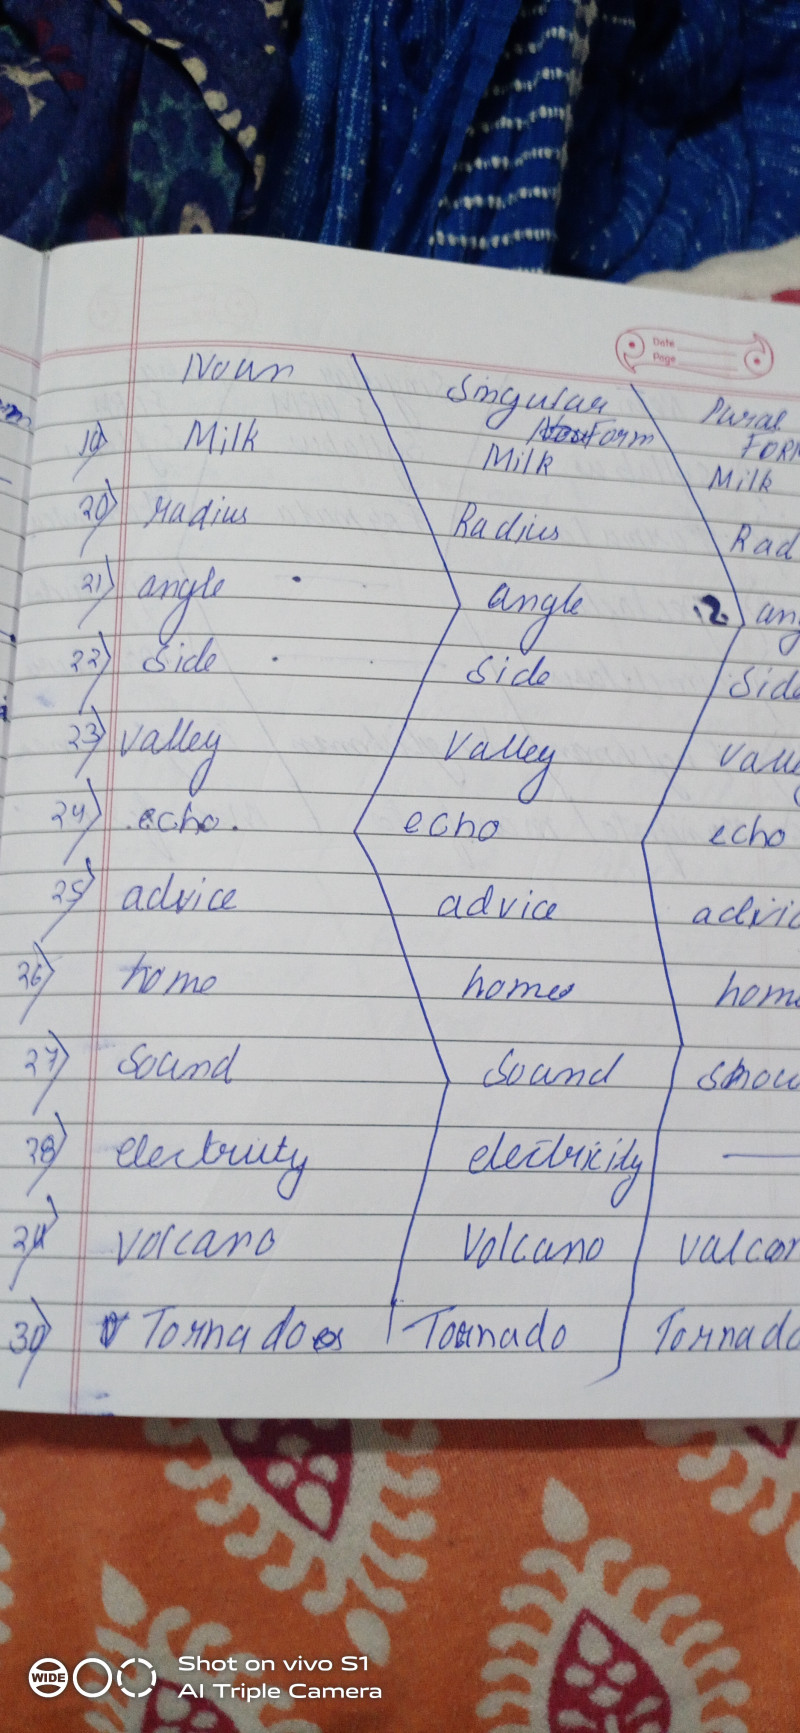 Date
Page
Noun Singular Form Pural FORM
19) Milk Milk Milk
20) radius Radius Rad
21) angle angle ang
22) Side Side Side
23) valley Valley Vall
24) echo. echo echo
25) advice advice advic
26) home home home
27) Sound Sound
28) electricity
29) volcano Volcano valcan
30) Tornadoes Tornado Tornado
WIDE
Shot on vivo S1
AI Triple Camera